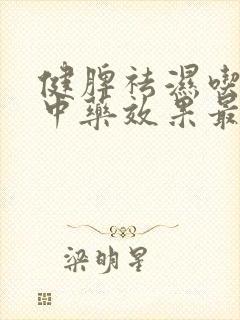 健脾祛濕喫
中藥效果最
梁明星